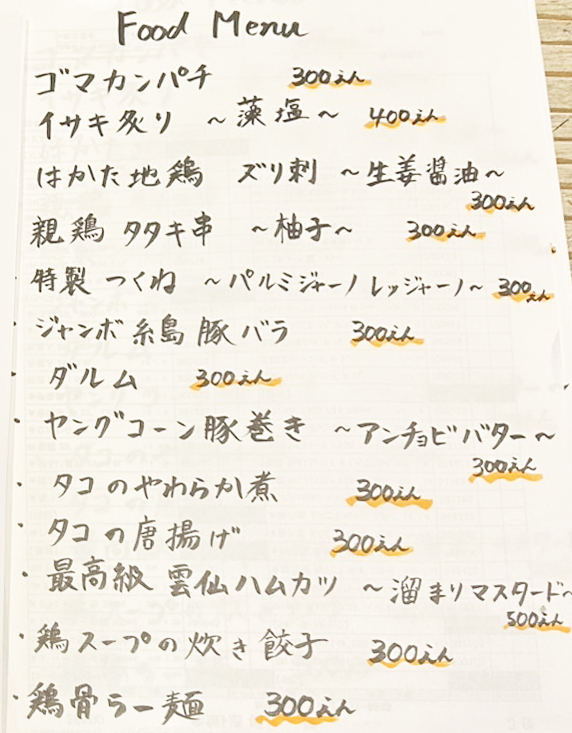 Food Menu
ゴマカンパチ 300えん
イサキ炙り ~藻塩~ 400えん
はかた地鶏 ズリ刺 ~生姜醤油~
300えん
親鶏タタキ串 ~柚子~ 300えん
・特製つくね ~パルミジャーノレッジャーノ~ 300えん
・ジャンボ糸島豚バラ 300えん
・ダルム 300えん
・ヤングコーン豚巻き ~アンチョビバター~
300えん
・タコのやわらか煮 300えん
・タコの唐揚げ 300えん
・最高級 雲仙ハムカツ ~溜まりマスタード~
500えん
・鶏スープの炊き餃子 300えん
・鶏骨らー麺 300えん